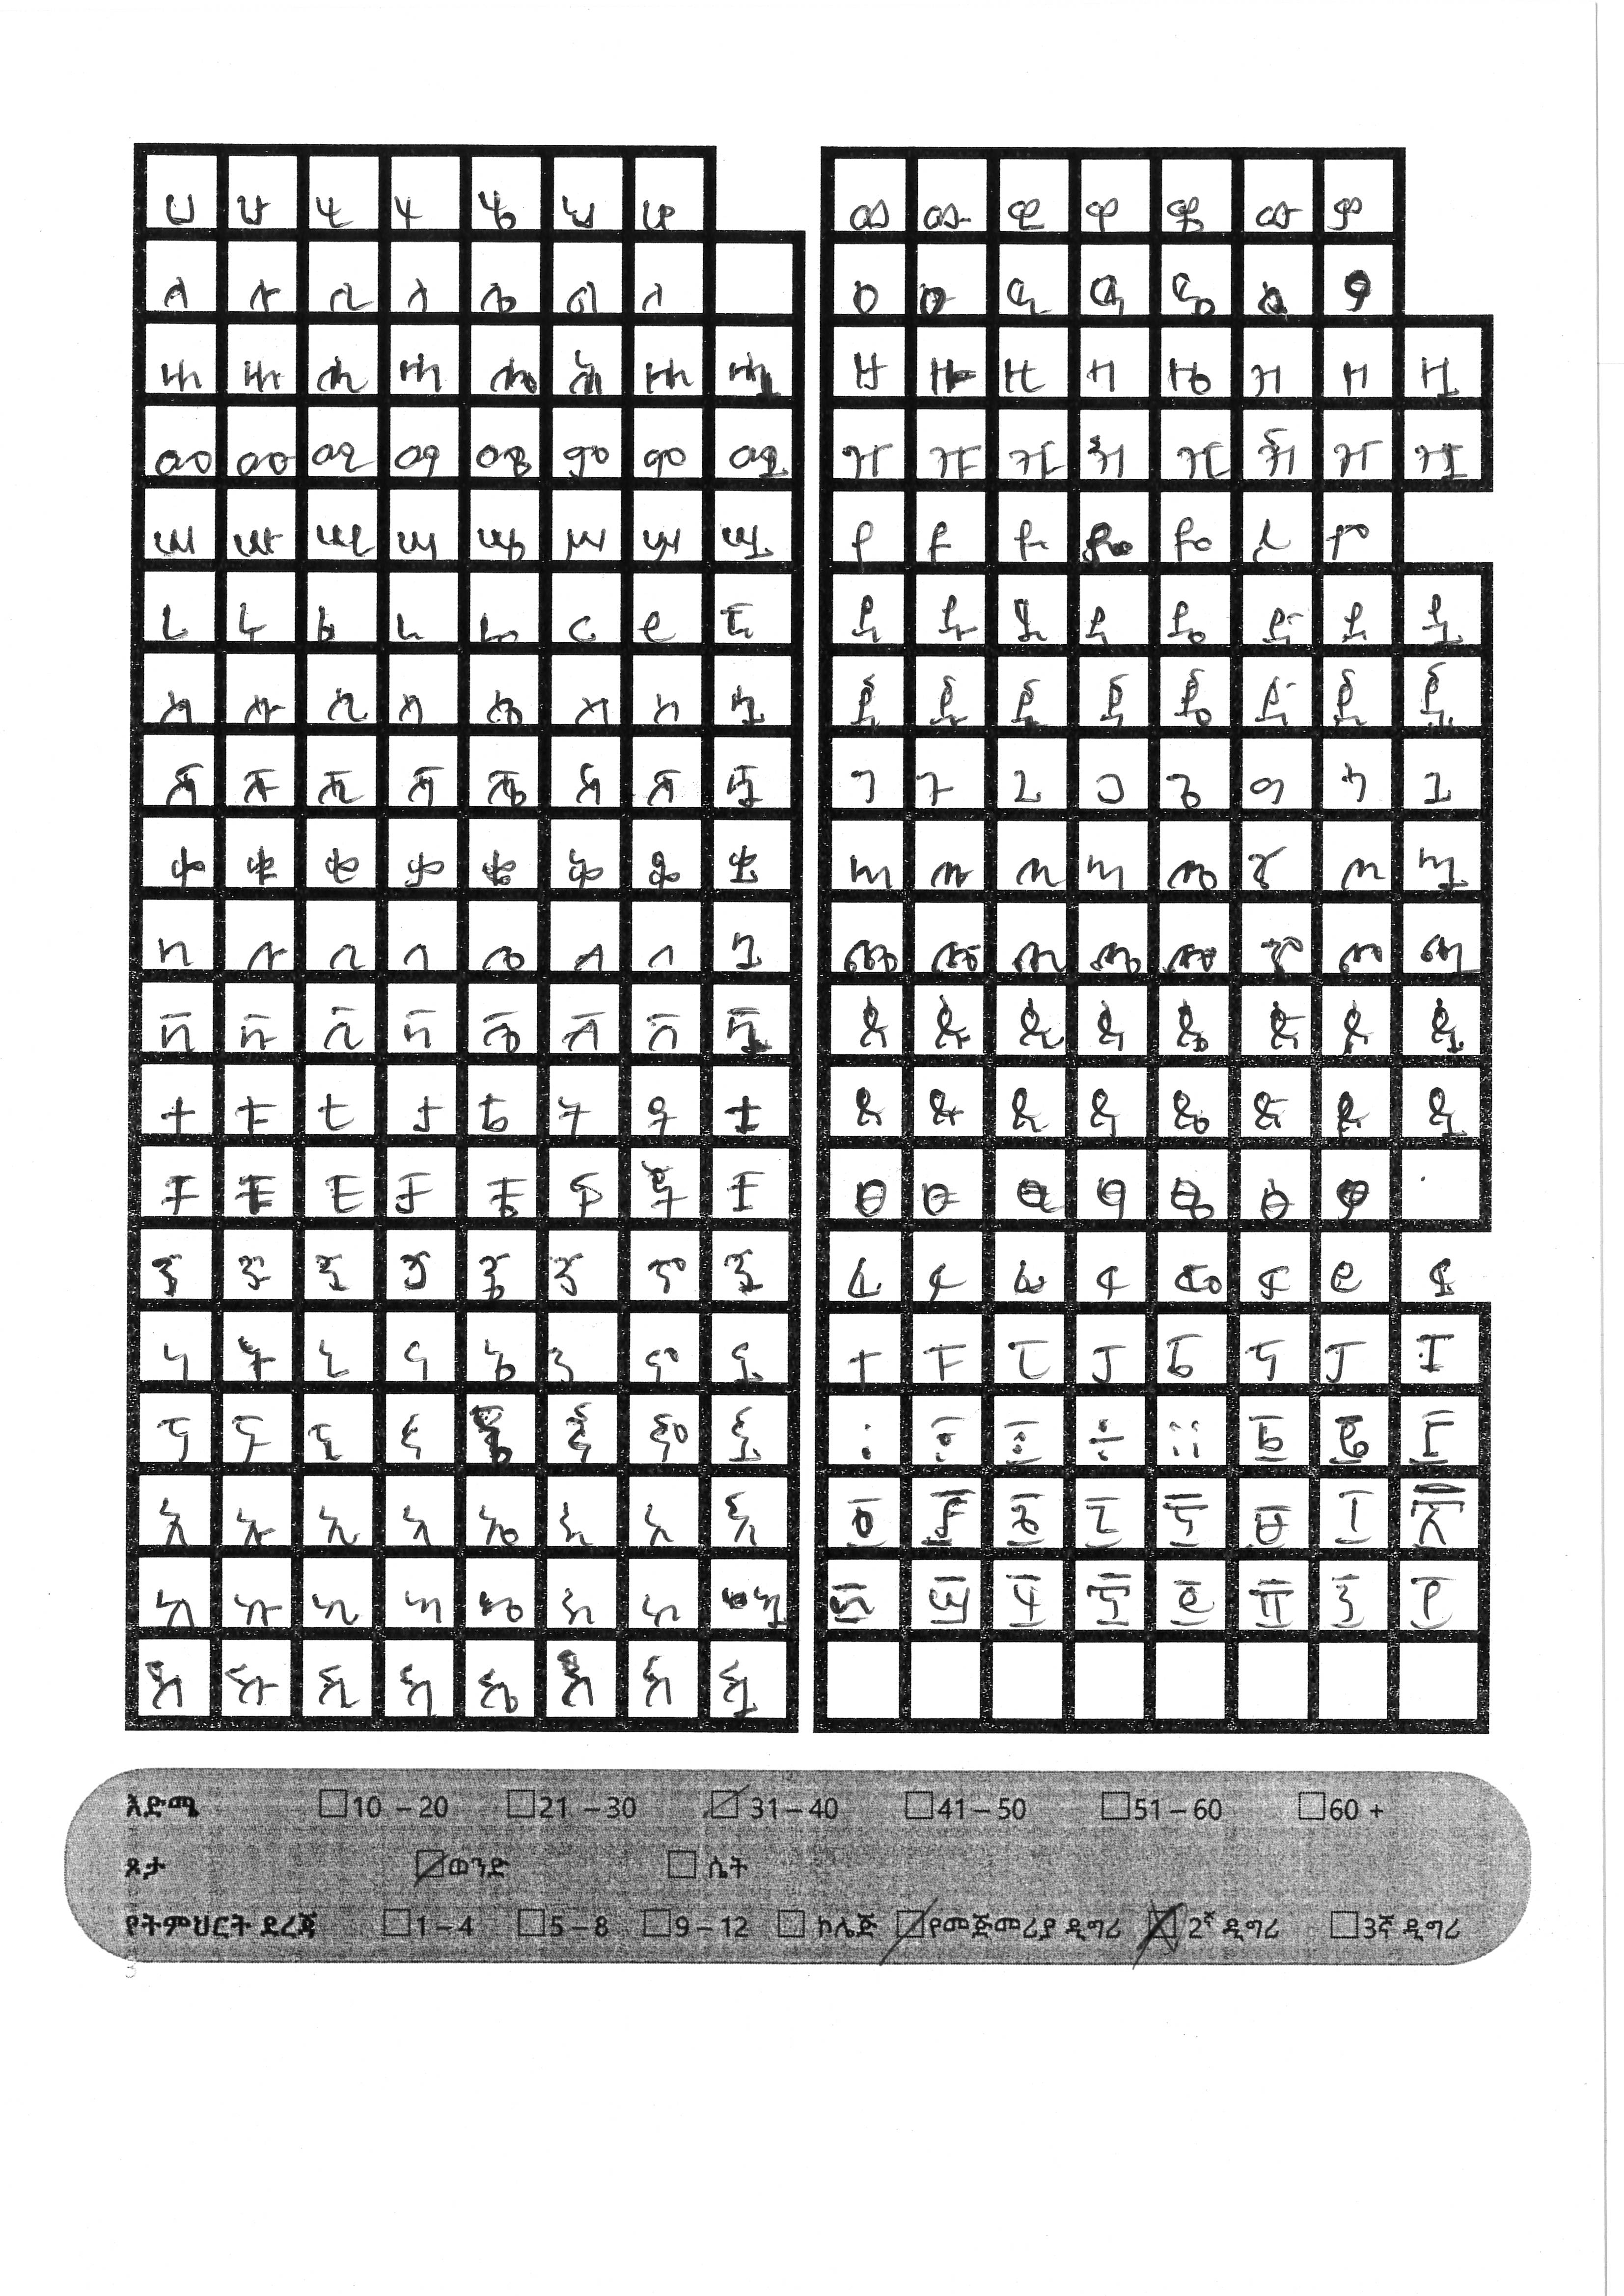 ሀ ሁ ሂ ሃ ሄ ህ ሆ
ለ ሉ ሊ ላ ሌ ል ሎ
ሐ ሑ ሒ ሓ ሔ ሕ ሖ ሗ
መ ሙ ሚ ማ ሜ ም ሞ ሟ
ሠ ሡ ሢ ሣ ሤ ሥ ሦ ሧ
ረ ሩ ሪ ራ ሬ ር ሮ ሯ
ሰ ሱ ሲ ሳ ሴ ስ ሶ ሷ
ሸ ሹ ሺ ሻ ሼ ሽ ሾ ሿ
ቀ ቁ ቂ ቃ ቄ ቅ ቆ ቋ
በ ቡ ቢ ባ ቤ ብ ቦ ቧ
ቨ ቩ ቪ ቫ ቬ ቭ ቮ ቯ
ተ ቱ ቲ ታ ቴ ት ቶ ቷ
ቸ ቹ ቺ ቻ ቼ ች ቾ ቿ
ኀ ኁ ኂ ኃ ኄ ኅ ኆ ኋ
ነ ኑ ኒ ና ኔ ን ኖ ኗ
ኘ ኙ ኚ ኛ ኜ ኝ ኞ ኟ
አ ኡ ኢ ኣ ኤ እ ኦ ኧ
ከ ኩ ኪ ካ ኬ ክ ኮ ኳ
ኸ ኹ ኺ ኻ ኼ ኽ ኾ ዃ
ወ ዉ ዊ ዋ ዌ ው ዎ
ዐ ዑ ዒ ዓ ዔ ዕ ዖ
ዘ ዙ ዚ ዛ ዜ ዝ ዞ ዟ
ዠ ዡ ዢ ዣ ዤ ዥ ዦ ዧ
የ ዩ ዪ ያ ዬ ይ ዮ
ደ ዱ ዲ ዳ ዴ ድ ዶ ዷ
ጀ ጁ ጂ ጃ ጄ ጅ ጆ ጇ
ገ ጉ ጊ ጋ ጌ ግ ጎ ጓ
ጠ ጡ ጢ ጣ ጤ ጥ ጦ ጧ
ጨ ጩ ጪ ጫ ጬ ጭ ጮ ጯ
ጰ ጱ ጲ ጳ ጴ ጵ ጶ ጷ
ጸ ጹ ጺ ጻ ጼ ጽ ጾ ጿ
ፀ ፁ ፂ ፃ ፄ ፅ ፆ
ፈ ፉ ፊ ፋ ፌ ፍ ፎ ፏ
ፐ ፑ ፒ ፓ ፔ ፕ ፖ ፗ
፡ ፥ ፤ ÷ ። ፩ ፪ ፫
፬ ፭ ፮ ፯ ፰ ፱ ፲ ፳
፴ ፵ ፶ ፷ ፸ ፹ ፺ ፻
እድሜ 10 – 20 21 – 30 31 – 40 41 – 50 51 – 60 60 +
ጾታ ወንድ ሴት
የትምህርት ደረጃ 1 – 4 5 – 8 9 – 12 ኮሌጅ የመጀመሪያ ዲግሪ 2ኛ ዲግሪ 3ኛ ዲግሪ
3